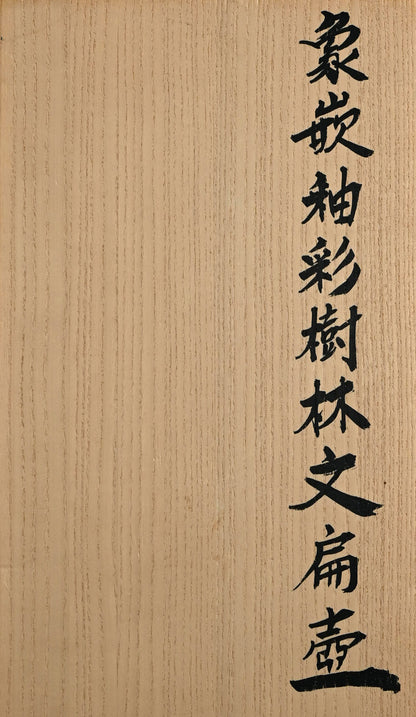 象嵌釉彩樹林文扁壺